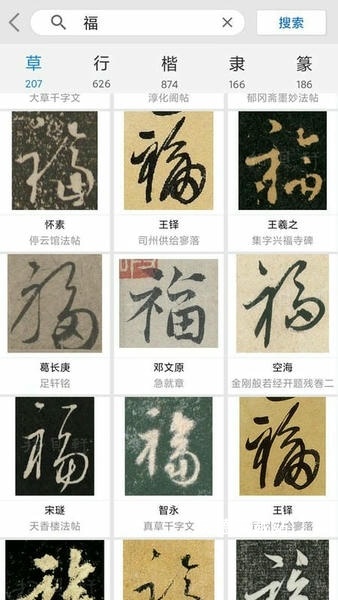 福
搜索
草 行 楷 隶 篆
207 626 874 166 186
大草千字文 淳化阁帖 郁冈斋墨妙法帖
福 福 福
怀素 王铎 王羲之
停云馆法帖 司州供给寥落 集字兴福寺碑
福 福 福
葛长庚 邓文原 空海
足轩铭 急就章 金刚般若经开题残卷二
福 福 福
宋璲 智永 王铎
天香楼法帖 真草千字文